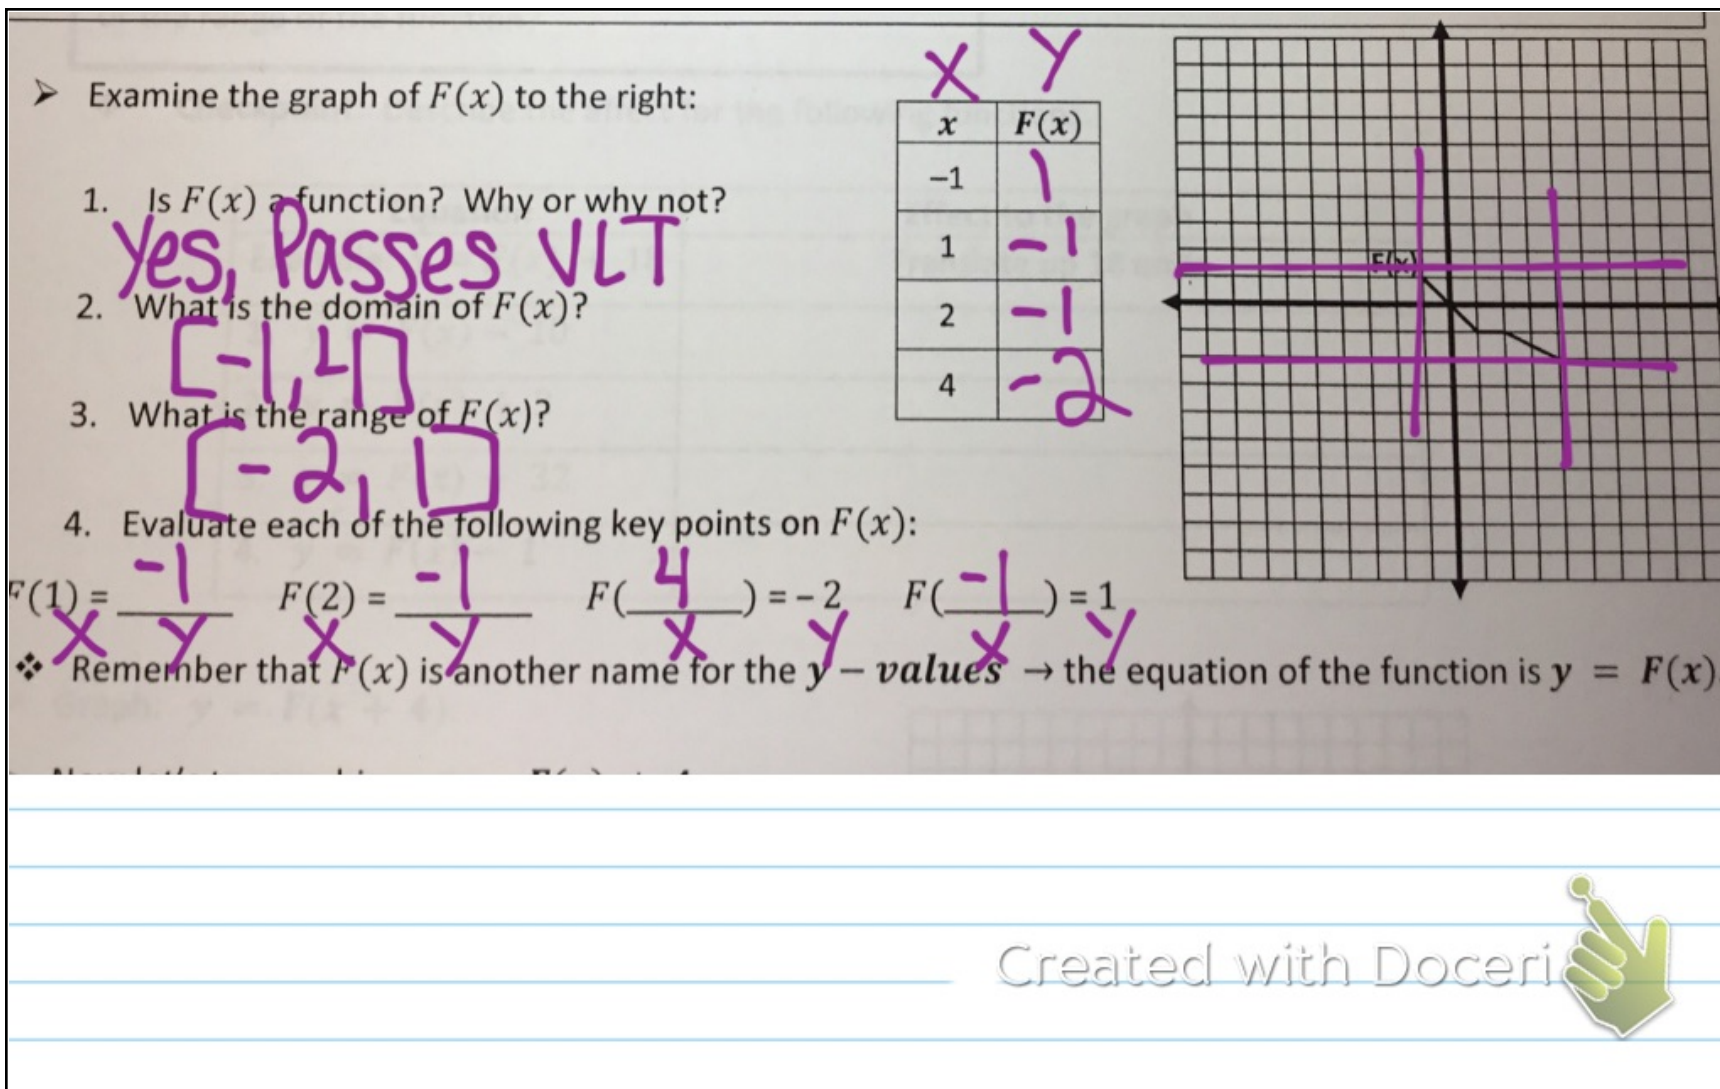 X Y
➢ Examine the graph of F(x) to the right:
x F(x)
−1 1
1 -1
2 -1
4 -2
F(x)
1. Is F(x) a function? Why or why not?
Yes, Passes VLT
2. What is the domain of F(x)?
[-1, 4]
3. What is the range of F(x)?
[-2, 1]
4. Evaluate each of the following key points on F(x):
F(1) = -1 F(2) = -1 F( 4 ) = – 2 F( -1 ) = 1
X Y X Y X Y X Y
❖ Remember that F(x) is another name for the y – values → the equation of the function is y = F(x)
Graph: y = F(x + 4)
Created with Doceri